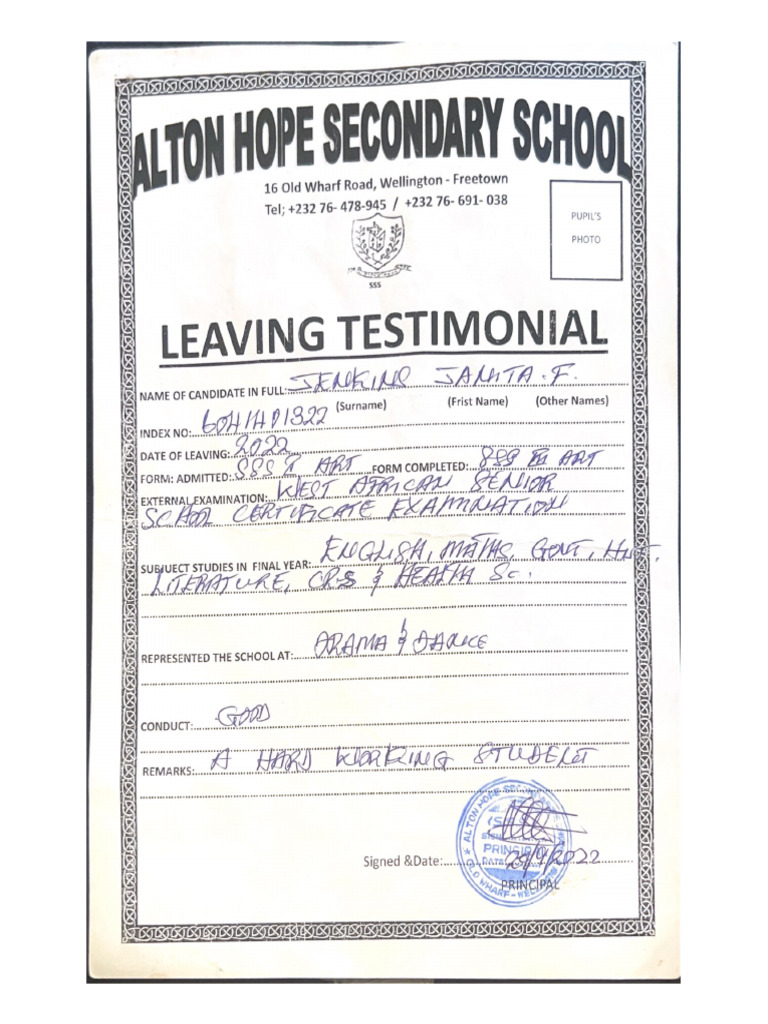 ALTON HOPE SECONDARY SCHOOL
16 Old Wharf Road, Wellington - Freetown
Tel; +232 76- 478-945 / +232 76- 691- 038
PUPIL'S
PHOTO
SSS
LEAVING TESTIMONIAL
NAME OF CANDIDATE IN FULL: JENKINS JANITA .F.
(Surname) (Frist Name) (Other Names)
INDEX NO:
DATE OF LEAVING: 2022
FORM: ADMITTED: SSS I ART FORM COMPLETED: SSS III ART
EXTERNAL EXAMINATION: WEST AFRICAN SENIOR
SCHOOL CERTIFICATE EXAMINATION
SUBJUECT STUDIES IN FINAL YEAR: ENGLISH, MATHS, GOVT,
LITERATURE, CRS & HEALTH SC.
REPRESENTED THE SCHOOL AT: DRAMA & DANCE
CONDUCT: GOOD
REMARKS: A HARD WORKING STUDENT
Signed &Date: 29/9/2022
PRINCIPAL